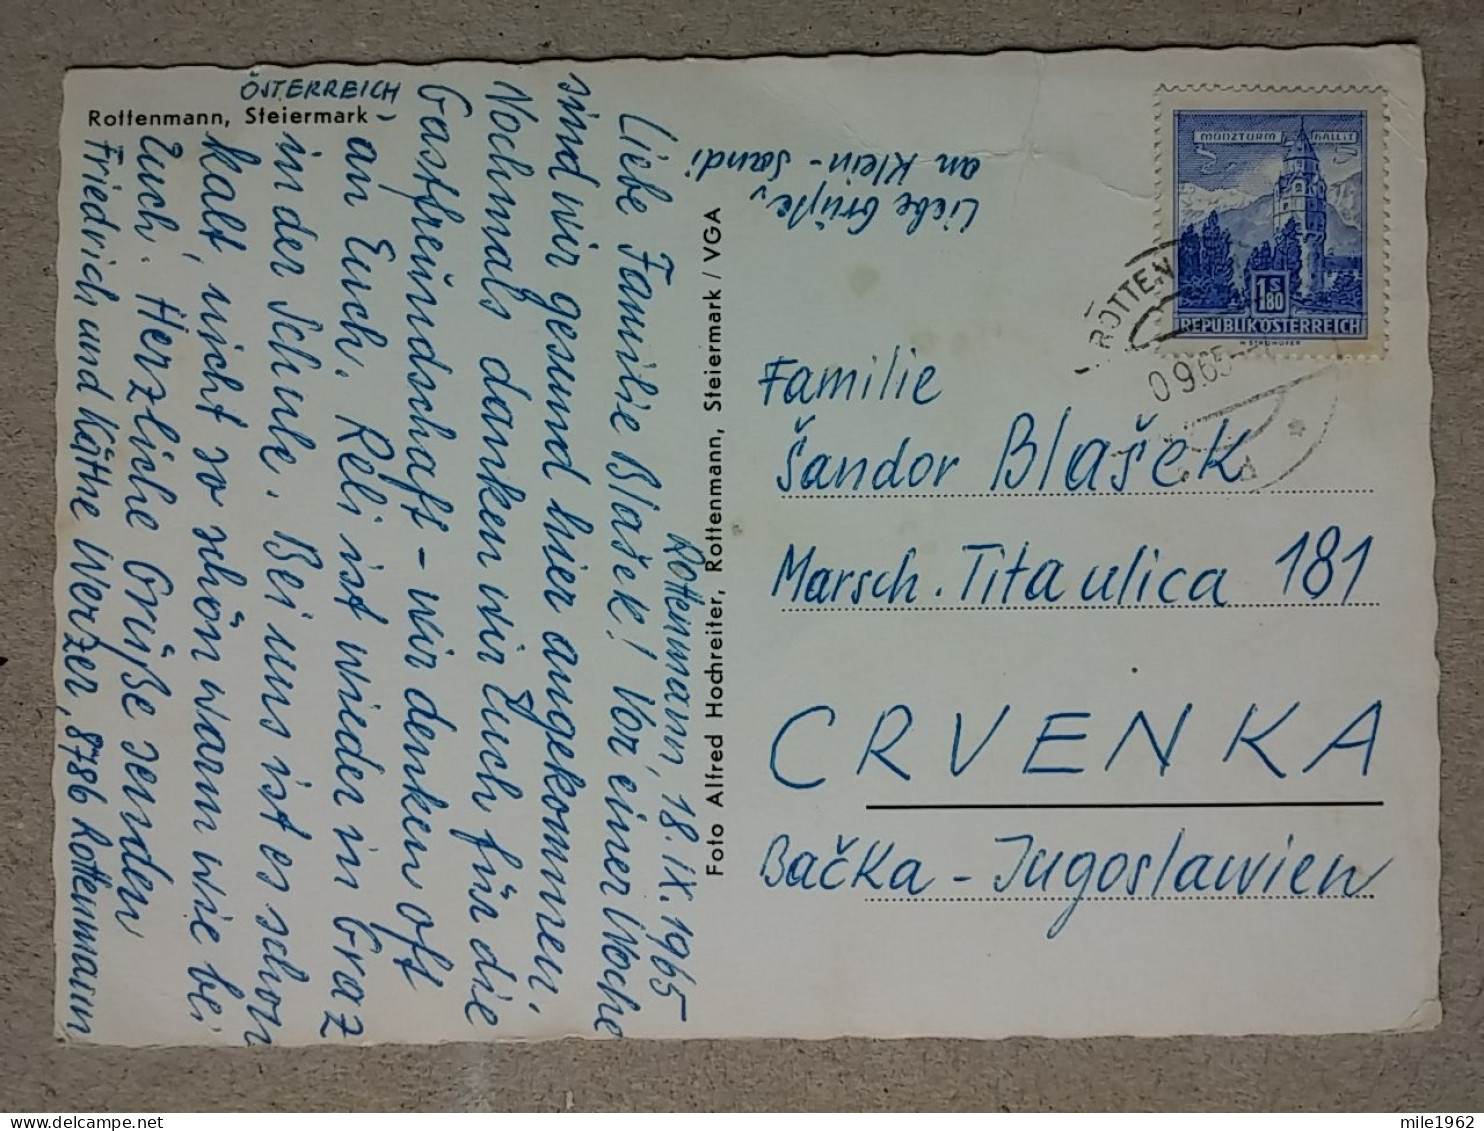 ÖSTERREICH
Rottenmann, Steiermark
Rottenmann, 18.IX.1965
Liebe Familie Blašek! Vor einer Woche
sind wir gesund hier angekommen.
Nochmals danken wir Euch für die
Gastfreundschaft - wir denken oft
an Euch. Reli ist wieder in Graz
in der Schule. Bei uns ist es schon
kalt, nicht so schön warm wie bei
Euch. Herzliche Grüße senden
Friedrich und Käthe Werzer, 8786 Rottenmann
Foto Alfred Hochreiter, Rottenmann, Steiermark / VGA
Liebe Grüße,
an Klein-Sandi
MÜNZTURM HALL I T
S 1.80
REPUBLIK ÖSTERREICH
ROTTEN
0.9.65
Familie
Šandor Blašek
Marsch. Tita ulica 181
CRVENKA
Bačka - Jugoslawien
mile1962